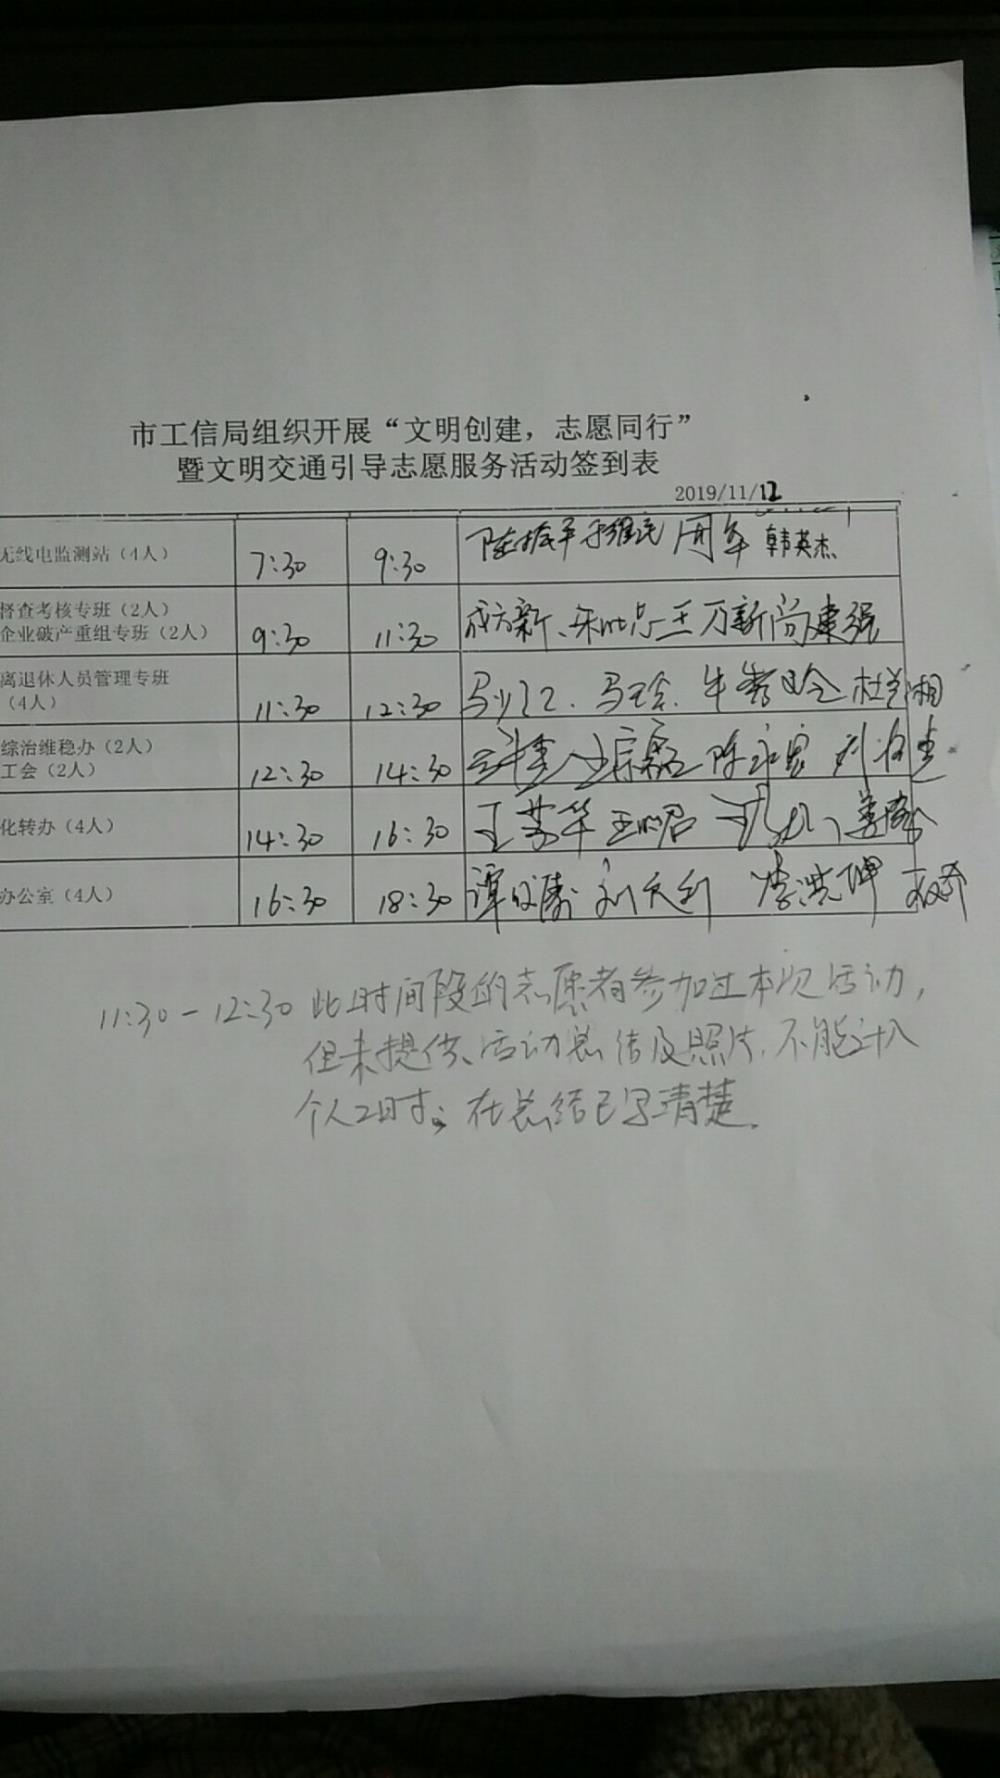 市工信局组织开展“文明创建，志愿同行”
暨文明交通引导志愿服务活动签到表
2019/11/12
无线电监测站（4人） 7:30 9:30 陈振平 于维民 周军 韩英杰
督查考核专班（2人）
企业破产重组专班（2人） 9:30 11:30 成方新、 王万新 尚建强
离退休人员管理专班
（4人） 11:30 12:30 马 马 牛 杜兰湘
综治维稳办（2人）
工会（2人） 12:30 14:30 王宗磊 陈永宏 刘
化转办（4人） 14:30 16:30 王芳华 王 姜
办公室（4人） 16:30 18:30 谭 刘天利 李洪坤
11:30-12:30 此时间段的志愿者参加过本次活动，
但未提供活动总结及照片，不能计入
个人工时；在总结已写清楚.